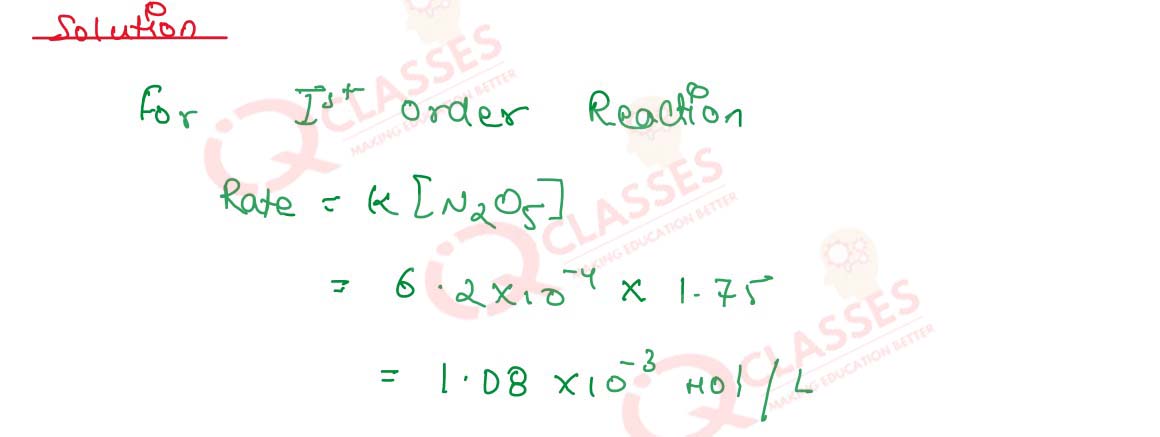 Solution
For Ist order Reaction
Rate = K [N2O5]
= 6.2 x 10^-4 x 1.75
= 1.08 x 10^-3 Mol/L
IQ CLASSES
MAKING EDUCATION BETTER
IQ CLASSES
MAKING EDUCATION BETTER
IQ CLASSES
MAKING EDUCATION BETTER